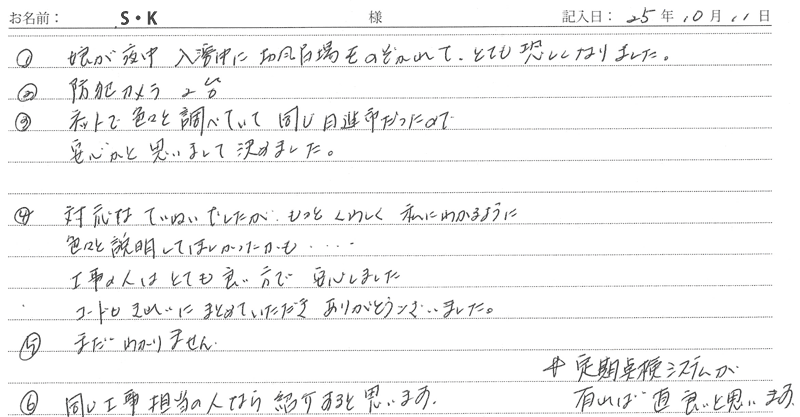 お名前： S・K 様 記入日： 25年10月11日
① 娘が夜中 入浴中に お風呂場をのぞかれて、とても恐しくなりました。
② 防犯カメラ 2台
③ ネットで色々と調べていて 同じ日進市だったので
安心かと思いまして決めました。
④ 対応は ていねいでしたが、もっと くわしく 私にわかるように
色々と説明してほしかったかも・・・・
工事の人はとても良い方で 安心しました
コードもきれいにまとめていただき ありがとうございました。
⑤ まだ わかりません
⑥ 同じ工事担当の人なら紹介すると思います。
定期点検システムが
有れば 直良いと思います